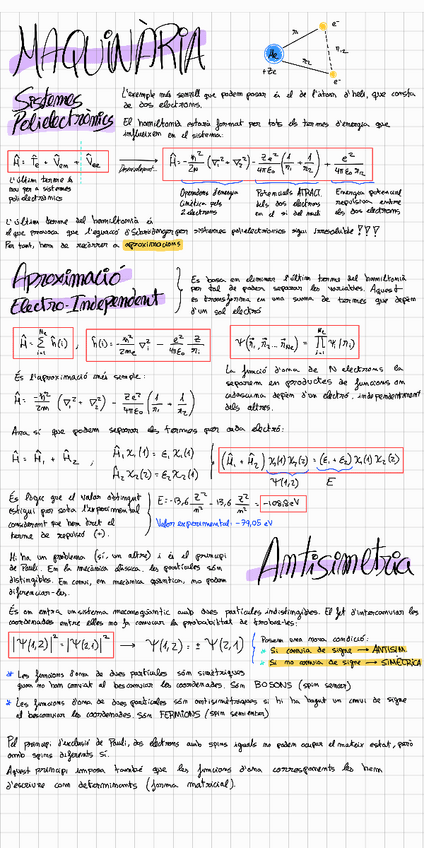 MAQUINÀRIA
e⁻
r₁
r₁₂
He
r₂
+2e
e⁻
Sistemes
Polielectrònics
L'exemple més senzill que podem posar és el de l'àtom d'heli, que consta
de dos electrons.
El hamiltonià estarà format per tots els termes d'energia que
influeixen en el sistema:
Ĥ = T̂e + V̂en + V̂ee
Ĥ = -ħ²/2m (∇₁² + ∇₂²) - Ze²/4πε₀ (1/r₁ + 1/r₂) + e²/4πε₀r₁₂
L'últim terme és
nou per a sistemes
polielectrònics
Operadors d'energia
cinètica pels
2 electrons
Potencials ATRACT.
dels dos electrons
en el si del nucli
Energia potencial
repulsiva entre
els dos electrons
L'últim terme del hamiltonià és
el que provoca que l'equació d'Schrödinger per sistemes polielectrònics sigui irresoluble!!!
Per tant, hem de recórrer a aproximacions
Aproximació
Electro-Independent
Es basa en eliminar l'últim terme del hamiltonià
per tal de poder separar les variables. Aquest
es transforma en una suma de termes que depèn
d'un sol electró
Ĥ = Σ ĥ(i) ; ĥ(i) = -ħ²/2me ∇i² - e²/4πε₀ Z/ri
Ψ(r₁, r₂... rNe) = Π Ψi(ri)
És l'aproximació més simple:
Ĥ = -ħ²/2m (∇₁² + ∇₂²) - Ze²/4πε₀ (1/r₁ + 1/r₂)
La funció d'ona de N electrons es
separa en productes de funcions on
cadascuna depèn d'un electró, independentment
dels altres.
Ara sí que podem separar els termes per cada electró:
Ĥ = Ĥ₁ + Ĥ₂ ;
Ĥ₁ χ₁(1) = ε₁ χ₁(1)
Ĥ₂ χ₂(2) = ε₂ χ₂(2)
(Ĥ₁ + Ĥ₂) χ₁(1) χ₂(2) = (ε₁ + ε₂) χ₁(1) χ₂(2)
Ψ(1,2)
E
És lògic que el valor obtingut
estigui per sota l'experimental
considerant que hem tret el
terme de repulsió (+).
E = -13,6 Z²/n² - 13,6 Z²/n² = -108,8 eV
Valor experimental: -79,05 eV
Antisimetria
Hi ha un problema (sí, un altre) i és el principi
de Pauli. En la mecànica clàssica, les partícules són
distingibles. En canvi, en mecànica quàntica, no podem
diferenciar-les.
Es en entra un sistema mecanoquàntic amb dues partícules indistingibles. El fet d'intercanviar les
coordenades entre elles no fa canviar la probabilitat de trobar-les:
|Ψ(1,2)|² = |Ψ(2,1)|² → Ψ(1,2) = ± Ψ(2,1)
Posem una nova condició:
* Si canvia de signe → ANTISIM.
* Si no canvia de signe → SIMÈTRICA
* Les funcions d'ona de dues partícules són simètriques
quan no hem canviat al bescanviar les coordenades. Són BOSONS (spin sencer)
* Les funcions d'ona de dues partícules són antisimètriques si hi ha hagut un canvi de signe
al bescanviar les coordenades. Són FERMIONS (spin semienter)
Pel principi d'exclusió de Pauli, dos electrons amb spins iguals no poden ocupar el mateix estat, però
amb spins diferents sí.
Aquest principi imposa també que les funcions d'ona corresponents les hem
d'escriure com determinants (forma matricial).